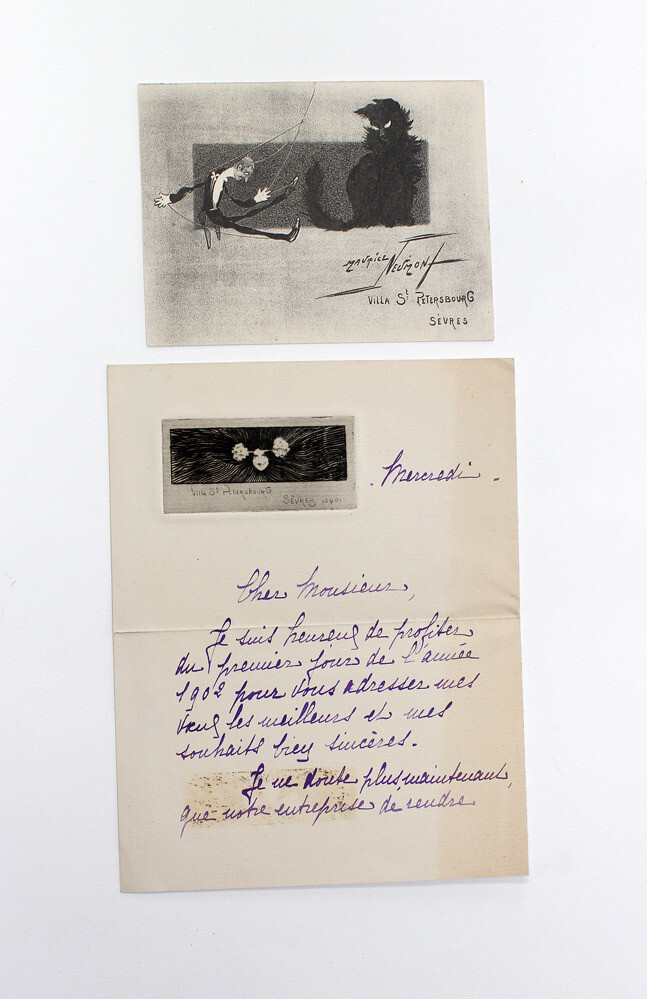 MAURICE NEUMONT
VILLA St PETERSBOURG
SÈVRES
VILLA St PETERSBOURG
SÈVRES
Mercredi.
Cher Monsieur,
Je suis heureux de profiter
du premier jour de l'année
1902 pour vous adresser mes
vœux les meilleurs et mes
souhaits bien sincères.
Je ne doute plus, maintenant,
que notre entreprise de rendre